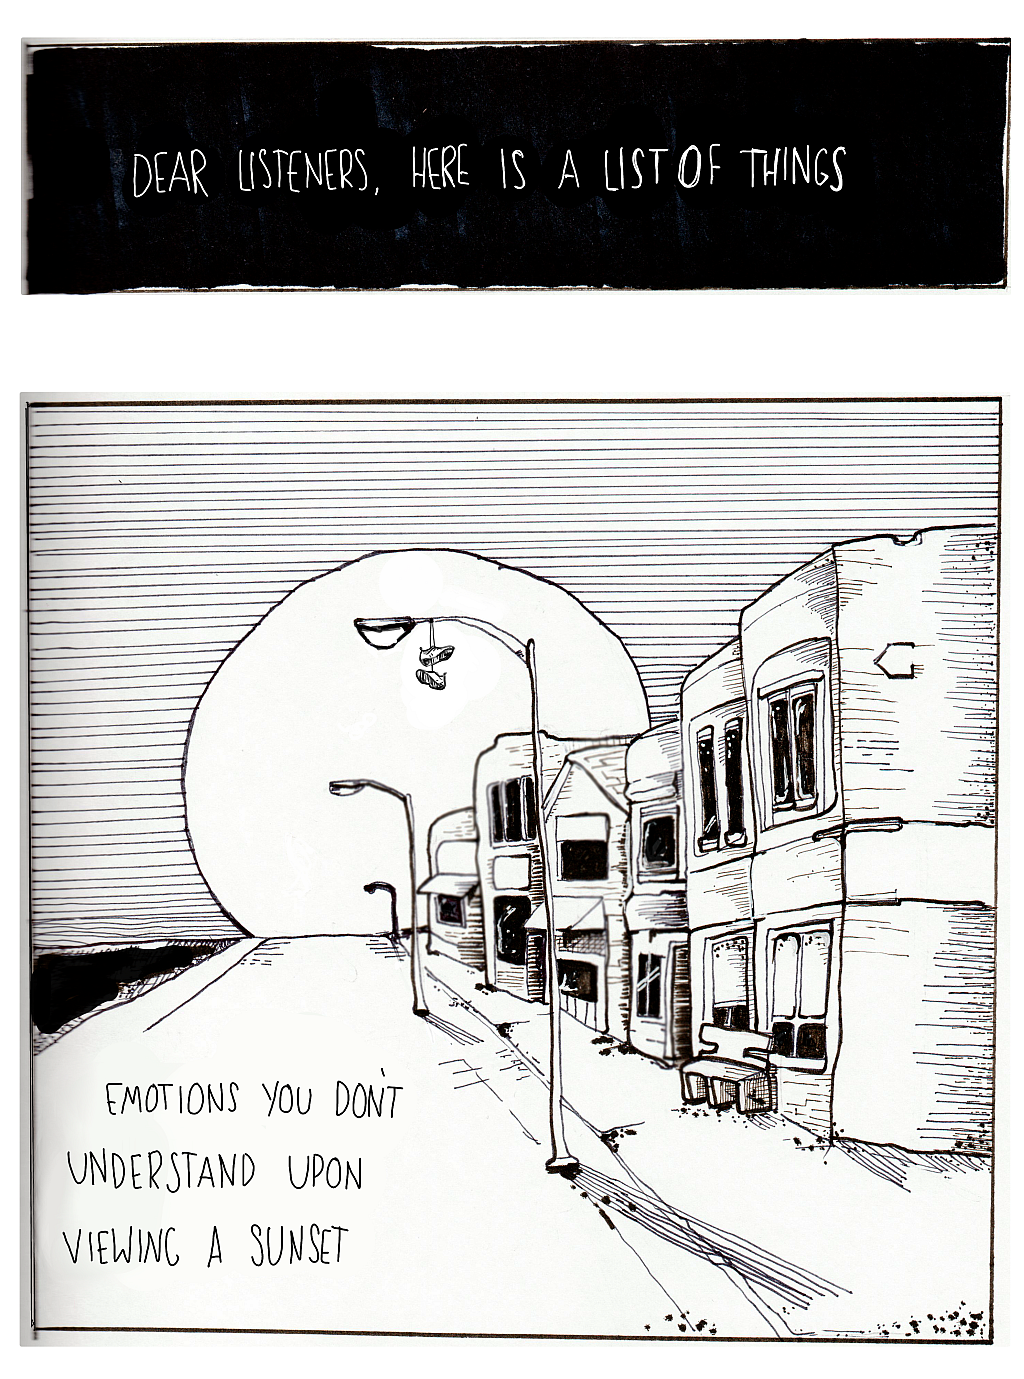 DEAR LISTENERS, HERE IS A LIST OF THINGS
EMOTIONS YOU DON'T
UNDERSTAND UPON
VIEWING A SUNSET